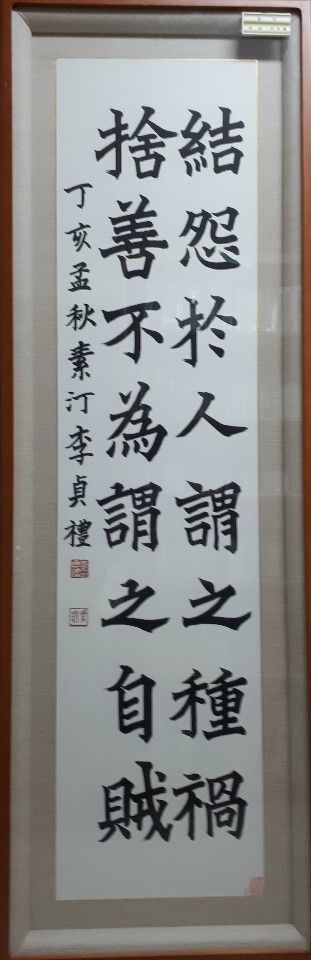 結怨於人謂之種禍
捨善不為謂之自賊
丁亥孟秋素汀李貞禮